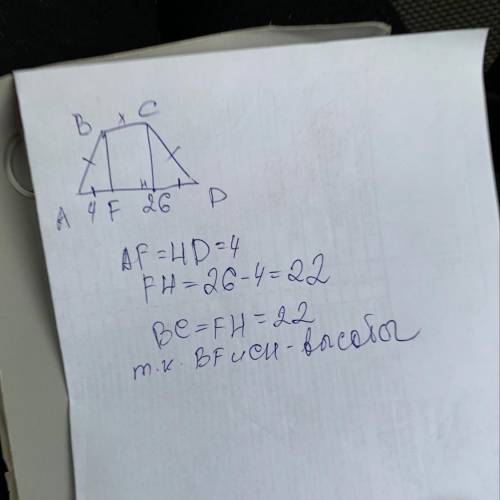 B C
A 4 F H 26 D
AF = HD = 4
FH = 26 - 4 = 22
BC = FH = 22
т.к. BF и CH - высоты